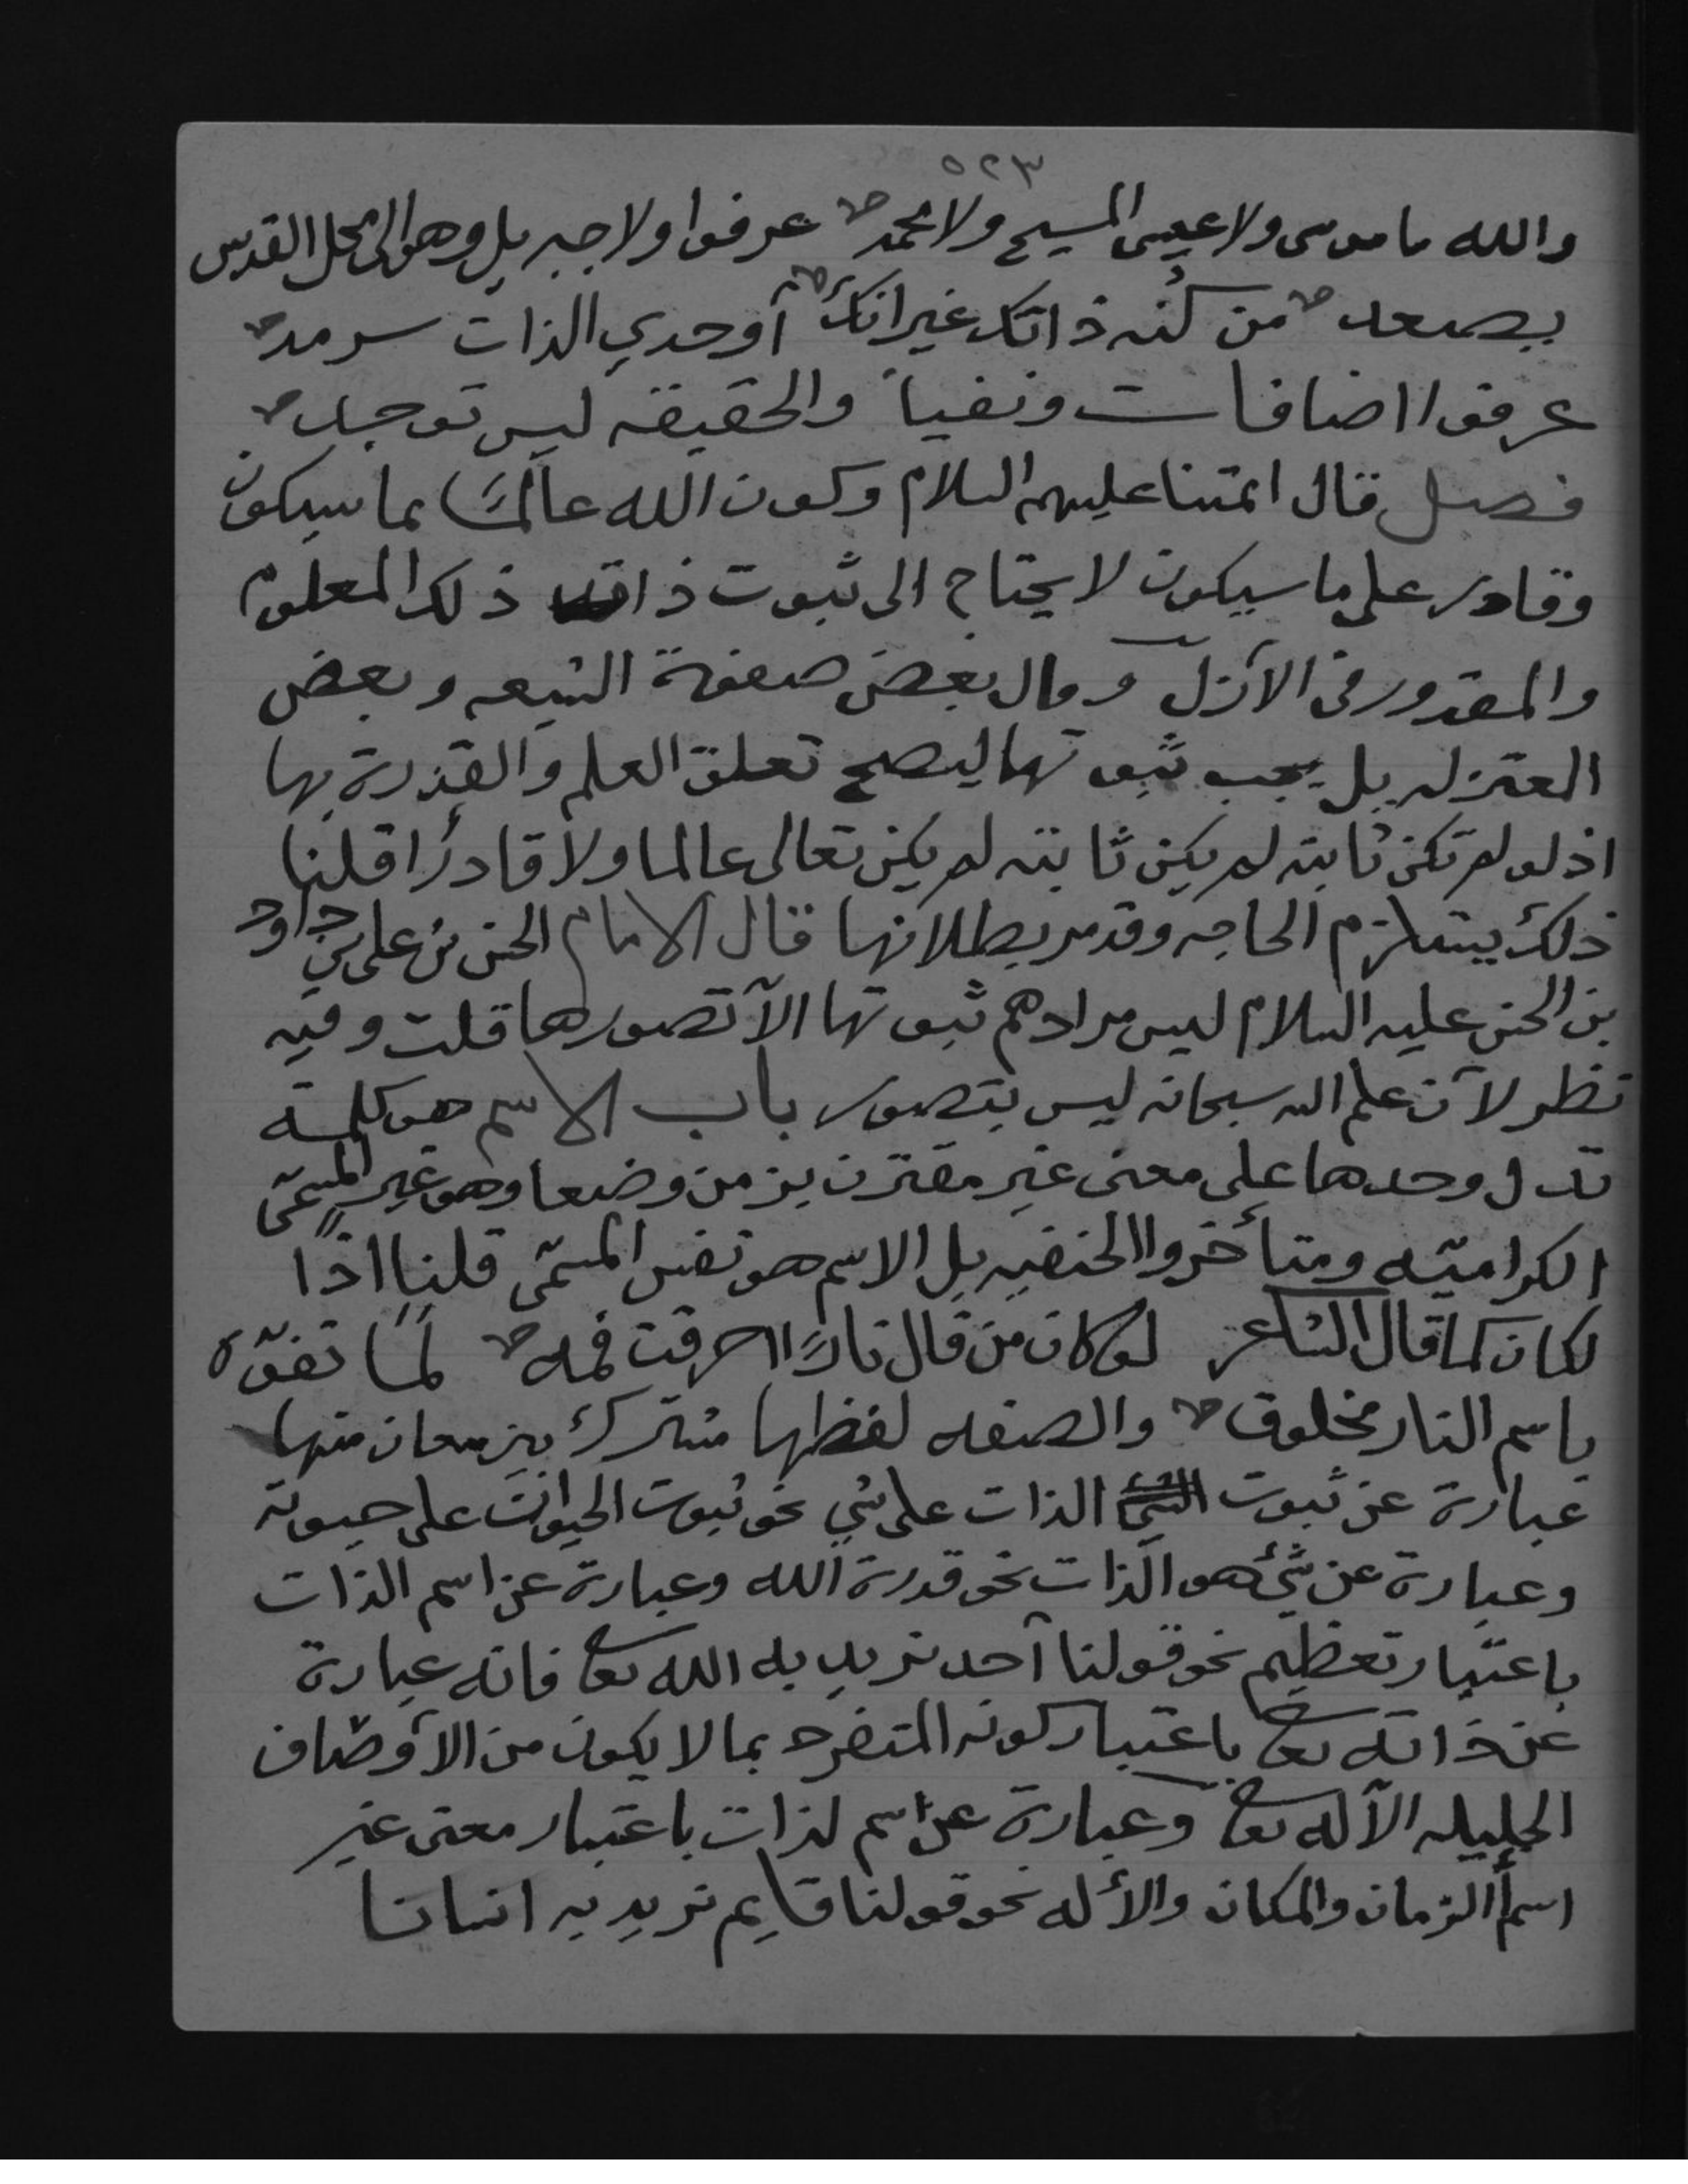 ٥٢٣
والله ما موسى ولا عيسى المسيح ولا محمد عرفوا ولا جبريل وهو الى محل القدس
يصعد من كُنه ذاتك غير انك أوحدي الذات سرمد
عرفوا اضافات ونفيا والحقيقه ليس توجد
فصل قال ائمتنا عليهم السلام وكون الله عالمًا بما سيكون
وقادر على ما سيكون لا يحتاج الى ثبوت ذات ذلك المعلوم
والمقدور في الأزل وقال بعض صفوة الشيعه وبعض
المعتزله بل يجب ثبوتها ليصح تعلق العلم والقدرة بها
اذ لو لم تكن ثابته لم يكن ثابته لم يكن تعالى عالما ولا قادرًا قلنا
ذلك يستلزم الحاجه وقد مر بطلانها قال الامام الحسن بن علي بن داود
بن الحسن عليه السلام ليس مرادهم ثبوتها الآ تصورها قلت وفيه
نظر لأن علم الله سبحانه ليس بتصور باب الاسم هو كلمة
تدل وحدها على معنى غير مقترن بزمن وضعا وهو غير المسمّى
الكراميّه ومتأخروا الحنفيه بل الاسم هو نفس المسمّى قلنا اذًا
لكان كما قال الشاعر لو كان من قال نارًا احرقت فمه لمًا تفوّه
باسم النار مخلوق والصفه لفظها مشترك بين معان منها
عبارة عن ثبوت الذات على شي نحو ثبوت الحيوان على حيوته
وعبارة عن شيء هو الذات نحو قدرة الله وعبارة عن اسم الذات
باعتبار تعظيم نحو قولنا أحد نريد به الله تعا فانه عبارة
عن ذاته تعا باعتبار كونه المتفرد بما لا يكون من الأوصاف
الجليله الآ له تعا وعبارة عن اسم لذات باعتبار معنى غير
اسم الزمان والمكان والأله نحو قولنا قايم نريد به انسانا